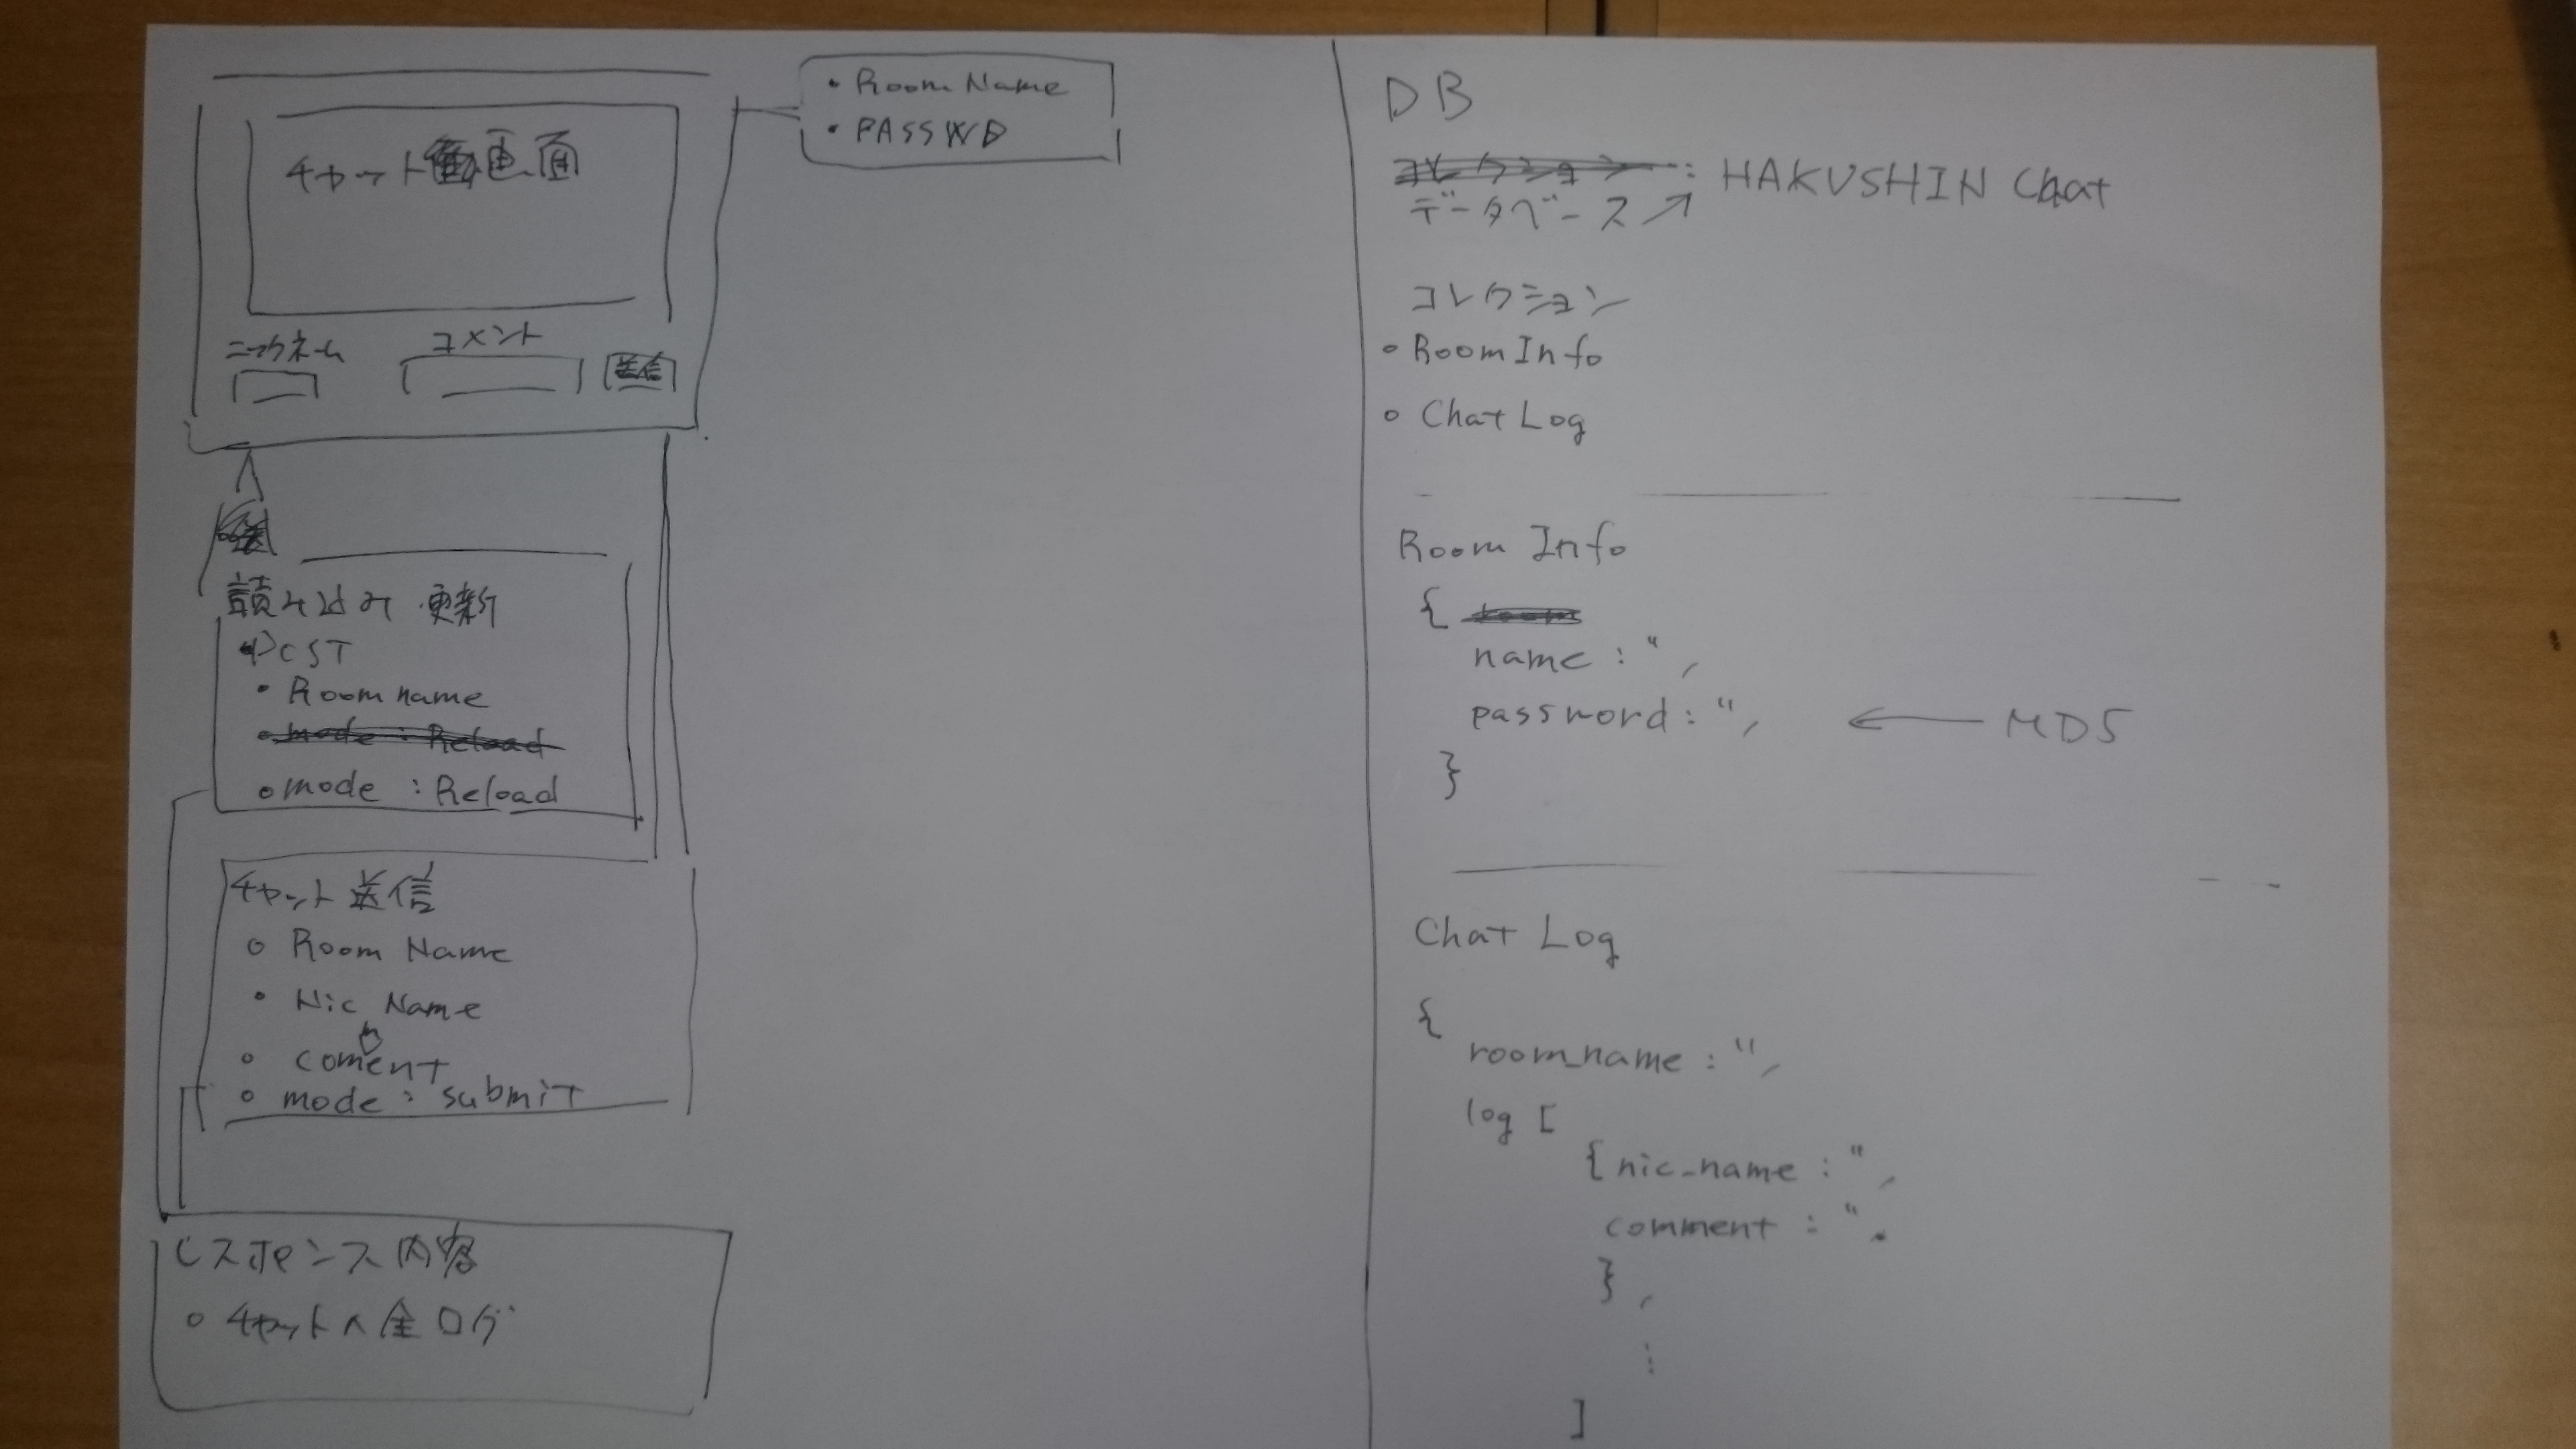 チャット画面
ニックネーム
コメント
送信
• Room Name
• PASSWD
読み込み 更新
POST
• Room name
• mode : Reload
• mode : Reload
チャット送信
○ Room Name
• Nic Name
○ coment
m
○ mode : submit
レスポンス内容
○ チャット全ログ
DB
コレクション : HAKUSHIN Chat
データベース ↗
コレクション
○ RoomInfo
○ Chat Log
Room Info
{ room
name : " ,
password : " , ← MD5
}
Chat Log
{
room_name : " ,
log [
{ nic_name : " ,
comment : " .
} ,
⋮
]